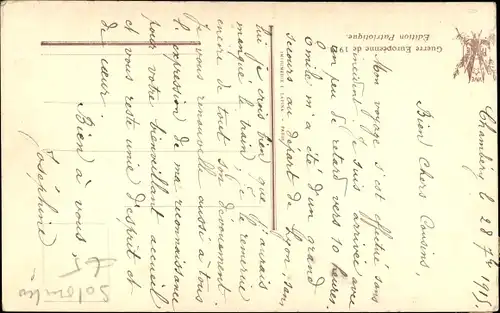 Guerre Européenne de 191
Edition Patriotique.
Chambéry le 28 7bre 1915.
Bien chers Cousins,
Mon voyage s'est effectué sans
incident. Je suis arrivée avec
un peu de retard vers 10 heures.
Emile m'a été d'un grand
secours au départ de Lyon, sans
lui je crois bien que j'aurais
manqué le train. Je le remercie
encore de tout son dévouement
Je vous renouvelle aussi à tous
l'expression de ma reconnaissance
pour votre bienveillant accueil
et vous reste unie d'esprit et
de cœur.
Bien à vous
Joséphine